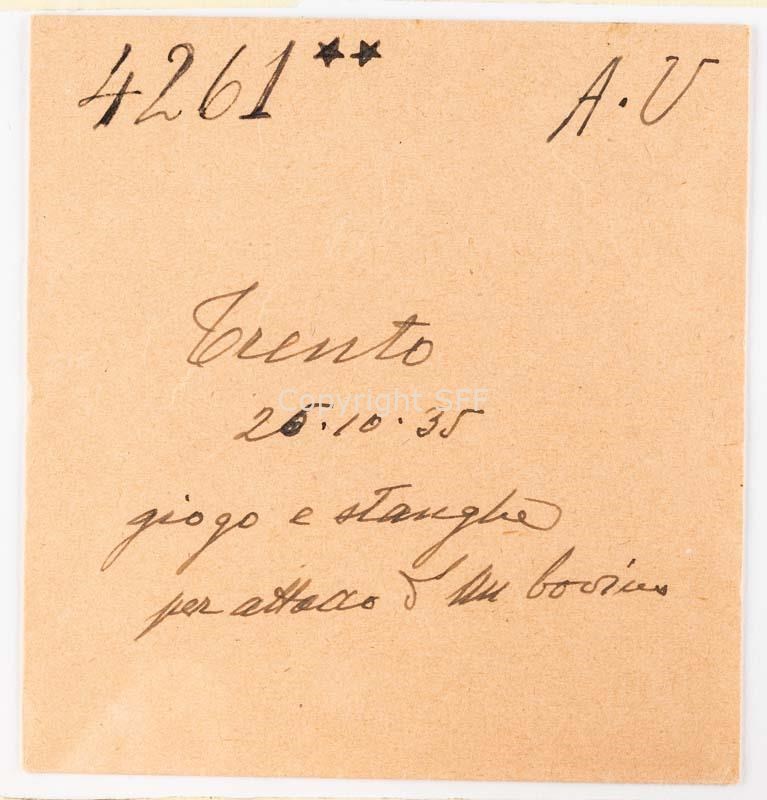 4261** A.V
Trento
Copyright SFF
25.10.35
giogo e stanghe
per attacco d'un bovino